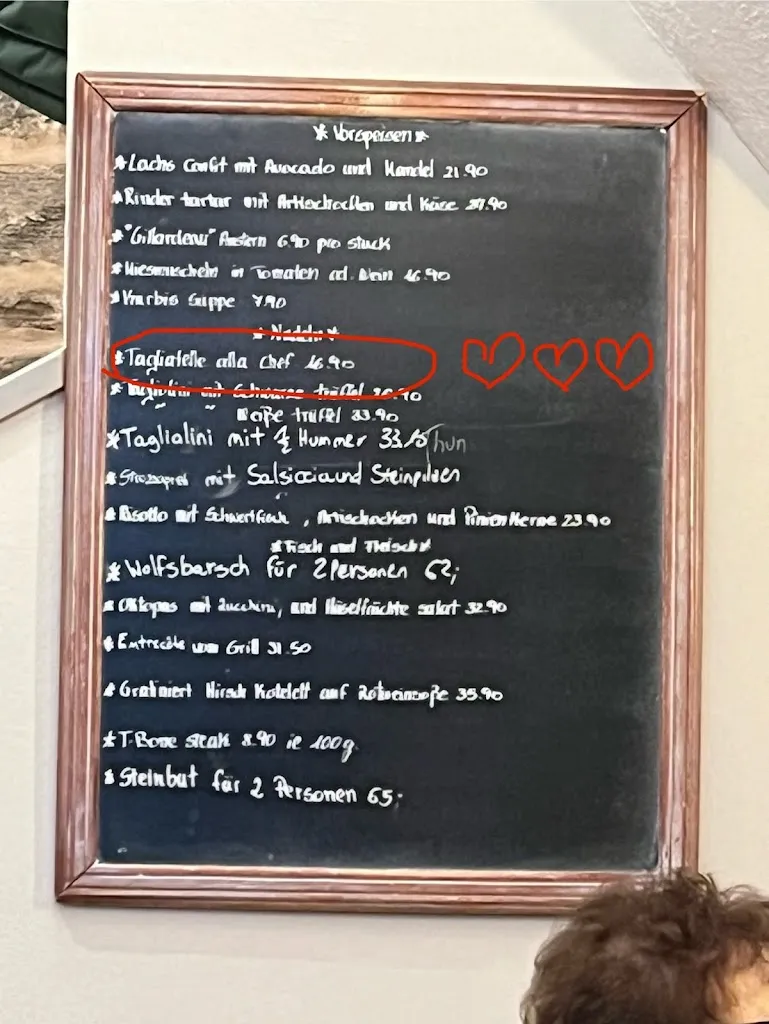 * Vorspeisen *
* Lachs Confit mit Avocado und Mandel 21.90
* Rinder tartar mit Artischocken und Käse
* "Gillardeau" Austern 6.90 pro stuck
* Miesmuscheln in Tomaten od. Wein 16.90
* Kürbis Suppe 7.90
* Nudeln *
* Tagliatelle alla Chef 16.90
* Tagliolini mit Schwarze trüffel
" " Weiße trüffel 33.90
* Taglialini mit ½ Hummer Thun
* mit Salsiccia und Steinpilzen
* Risotto mit Schwertfisch, Artischocken und Pinien Kerne 23.90
* Fisch und Fleisch *
* Wolfsbarsch für 2 Personen 62,-
* Oktopus mit zucchini, und salat 32.90
* vom Grill 31.50
* Gratiniert Hirsch Kotelett auf Rotweinsoße 35.90
* T.Bone steak 8.90 je 100g
* Steinbut für 2 Personen 65,-